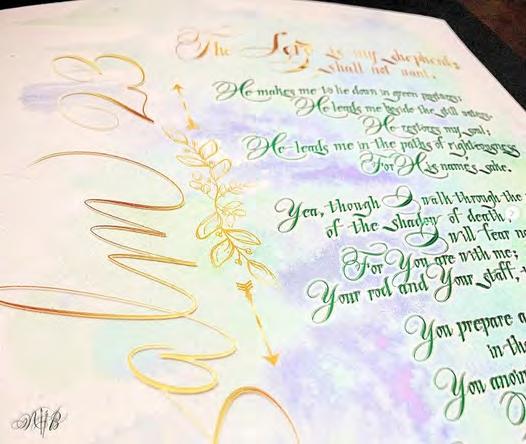 Psalm 23
The Lord is my shepherd;
I shall not want.
He makes me to lie down in green pastures;
He leads me beside the still waters.
He restores my soul;
He leads me in the paths of righteousness
For His name's sake.
Yea, though I walk through the
of the shadow of death,
I will fear no
For You are with me;
Your rod and Your staff,
You prepare a
in the
You anoin